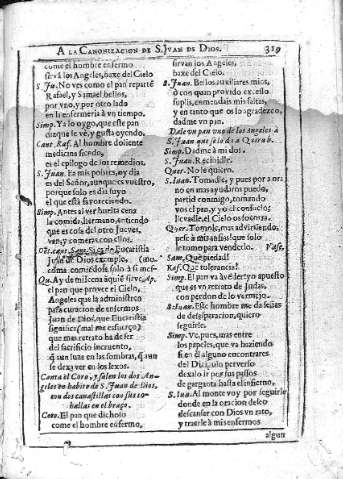 A LA CANONIZACION DE S. IVAN DE DIOS. 319
come el hombre enfermo
sirvã los Angeles, baxe del Cielo
S. Ju. No ves como el pan reparte
Rafael, y Samuel bellos,
por vno, y por otro lado
en la enfermeria à vn tiempo.
Simp. Ya lo oygo, que este pan
aunque le vè, y gusta oyendo.
Cant. Raf. Al hombre doliente
medicina siendo,
es el epilogo de los remedios.
S. Juan. En mis pobres, oy dia
es del Señor, aunque es vuestro,
porque solo es dia suyo
el que està favoreciendo.
Simp. Antes al ver hurta cena
la comida, hermano, entiendo
que es cosa del otro Jueves,
ven, y comeràs con ellos.
Eucaristia
Juan de Dios exemplo,
coma comiedose solo à si mes-
Qu. Ay de mi!
el pan que provee el Cielo,
Angeles que la administren
para curacion de enfermos
Juan de Dios, que Eucaristia
significa (mal me esfuerço)
que mas retrato ha de ser
del sacrificio incruento,
q̃ aun luze en las sombras, q̃ aun
se dexa ver en los lexos.
Canta el Coro, y salen los dos An-
geles en habito de S. Juan de Dios,
con dos canastillas con sus to-
hallas en el braço.
Coro. El pan que dichoso
come el hombre enfermo,
sirvan los Angeles,
baxe del Cielo.
S. Juan. Bellos auxiliares mios,
ò con quan provido exceso
suplis, enmendais mis faltas,
y en tanto que os lo agradezco,
dadme vn pan.
Dale vn pan vno de los Angeles à
S. Juan que se lo dè à Querub.
Simp. Dadme à mi dos.
S. Juan. Recibidle.
Quer. No le quiero.
S. Juan. Tomadle, y pues por aora
no en mas ayudaros puedo,
partid conmigo, tomando
vos el pan, y yo el consuelo;
llevadle, el Cielo os socorra.
Quer. Tomole, mas advirtiendo,
pese à mis ansias! que solo
le tomo para venderlo. Vase.
Sam. Què piedad!
Raf. Què tolerancia!
Simp. El pan va à vender? yo apuesto
que es vn retrato de Judas,
con perdon de lo vermejo.
S. Juan. Este hombre me dà señas
de desesperacion, quiero
seguirle.
Simp. Ve, pues, mas entre
los papeles, que va haziendo
si en el alguno encontrares
del Diu, solo perverso
dexalo ir por sus passos
de garganta hasta el infierno,
S. Jua. Al monte voy por seguirle
donde en la oracion deseo
descansar con Dios vn rato,
y traerle à mis enfermos
algun